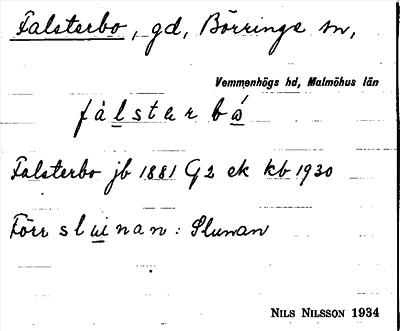 Falsterbo, gd, Börringe sn,
Vemmenhögs hd, Malmöhus län
fálstɐrbó
Falsterbo jb 1881 G2 ek kb 1930
Förr sluınan: Slunan
NILS NILSSON 1934